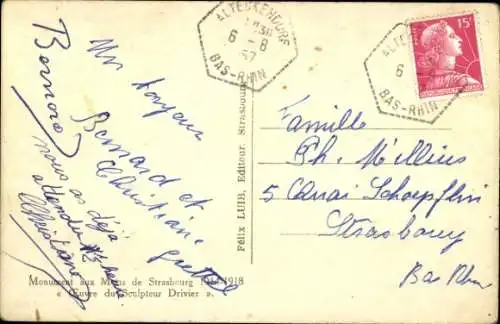 ALTECKENDORF
6 - 8
57
BAS-RHIN
15F
ALTECK
6
BAS-RHIN
Un bonjour
Bernard et
Christiane
Famille
Ph. Millius
5 Quai Schoepflin
Strasbourg
Bas Rhin
nous as déjà
Félix LUIB, Editeur, Strasbourg
Monument aux Morts de Strasbourg 1914-1918
« Œuvre du Sculpteur Drivier ».